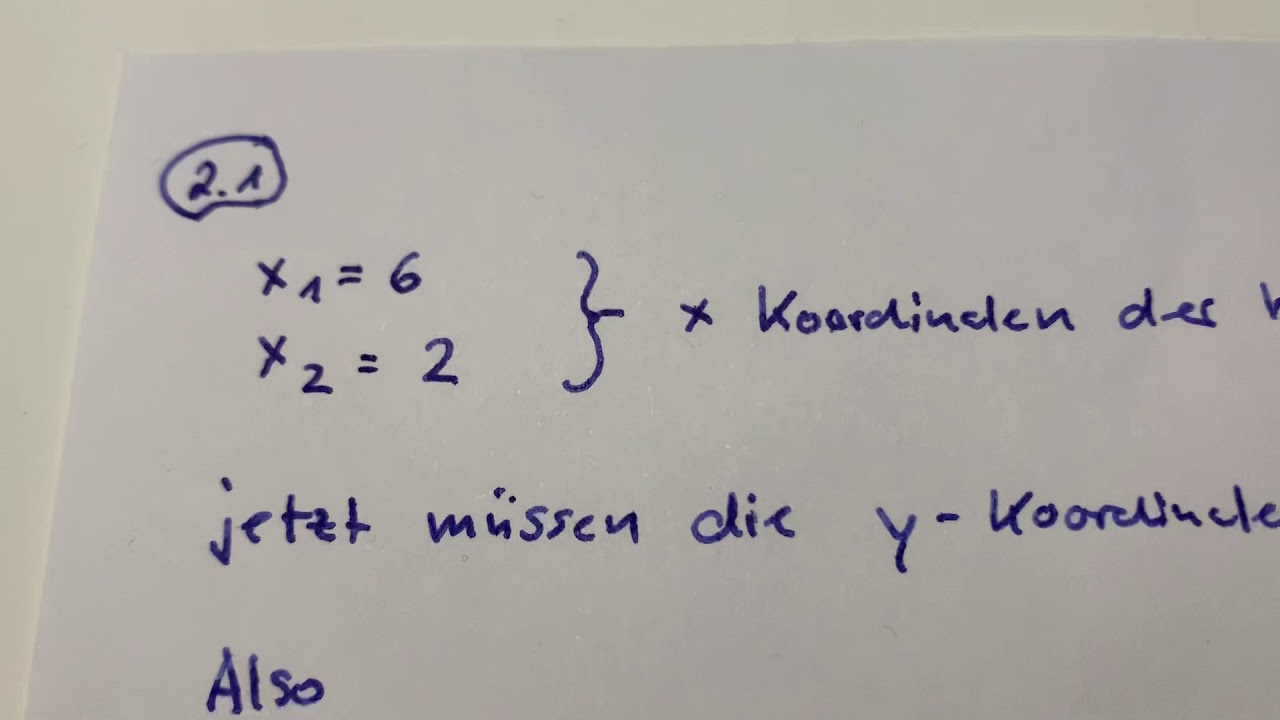 2.1
x₁ = 6
x₂ = 2 } x Koordinaten der
jetzt müssen die y-Koordinate
Also